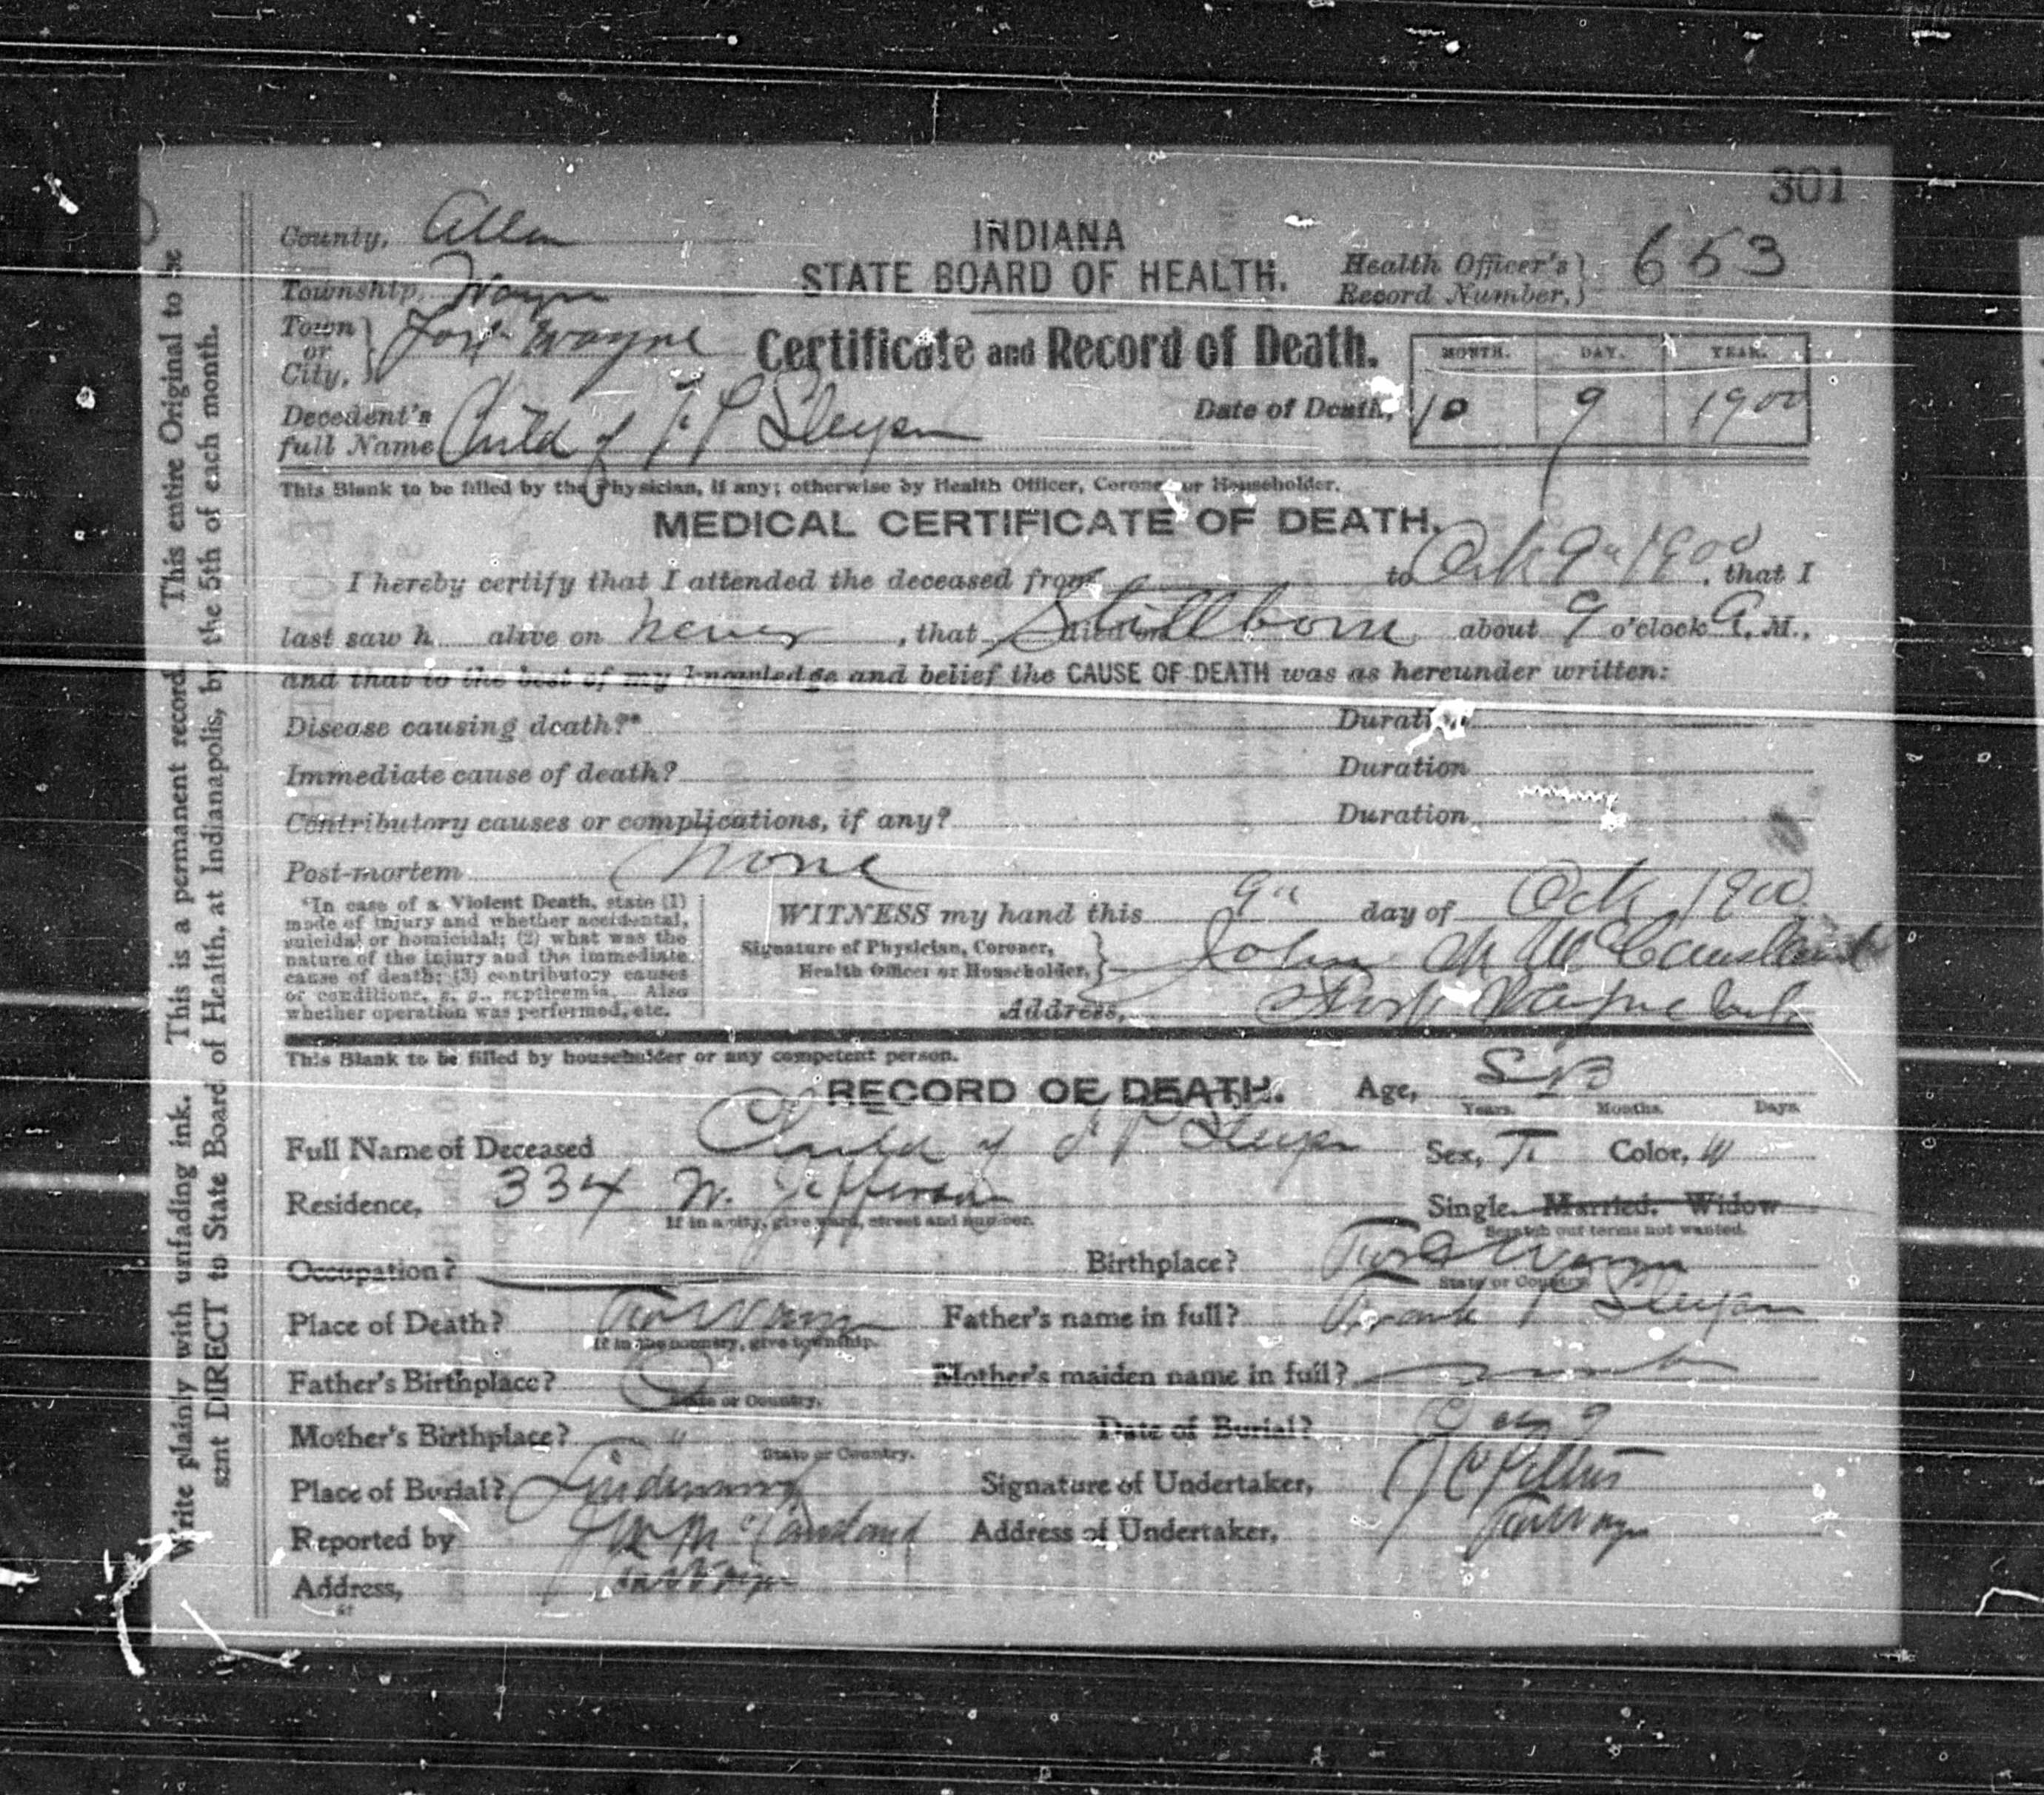 301
County, Allen
INDIANA
STATE BOARD OF HEALTH.
Health Officer's Record Number, 653
Township, Wayne
Town or City, Fort Wayne
Certificate and Record of Death.
MONTH. DAY. YEAR.
Date of Death, 10 9 1900
Decedent's full Name Child of F P
This Blank to be filled by the Physician, if any; otherwise by Health Officer, Coroner or Householder.
MEDICAL CERTIFICATE OF DEATH.
I hereby certify that I attended the deceased from to Oct 9th 1900, that I
last saw h alive on never, that died on Stillborn about 9 o'clock A. M.,
and that to the best of my knowledge and belief the CAUSE OF DEATH was as hereunder written:
Disease causing death?* Duration
Immediate cause of death? Duration
Contributory causes or complications, if any? Duration
Post-mortem None
*In case of a Violent Death, state (1)
made of injury and whether accidental,
suicidal or homicidal; (2) what was the
nature of the injury and the immediate
cause of death; (3) contributory causes
or conditions, e. g., septicemia. Also
whether operation was performed, etc.
WITNESS my hand this 9th day of Oct 1900
Signature of Physician, Coroner,
Health Officer or Householder, John M McCausland
Address, Fort Wayne Ind.
This Blank to be filled by householder or any competent person.
RECORD OF DEATH. Age, S B
Years. Months. Days.
Full Name of Deceased Child of F P Sex, F Color, W
Residence, 334 W. Jefferson Single. Married. Widow
If in a city, give ward, street and number. Scratch out terms not wanted.
Occupation? Birthplace? Fort Wayne
State or Country.
Place of Death? Ft Wayne Father's name in full? Frank P
If in the country, give township.
Father's Birthplace? Mother's maiden name in full?
State or Country.
Mother's Birthplace? " Date of Burial? 9
State or Country.
Place of Burial? Lindenwood Signature of Undertaker, J C Peltier
Reported by J M McCausland Address of Undertaker, Ft Wayne
Address, Ft Wayne
Write plainly with unfading ink. This is a permanent record. This entire Original to be
sent DIRECT to State Board of Health, at Indianapolis, by the 5th of each month.